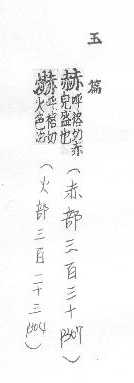 玉篇
赫 呼格切赤
皃盛也（赤部三百三十 P307）
爀 呼格切
火色也（火部三百二十三 P304）